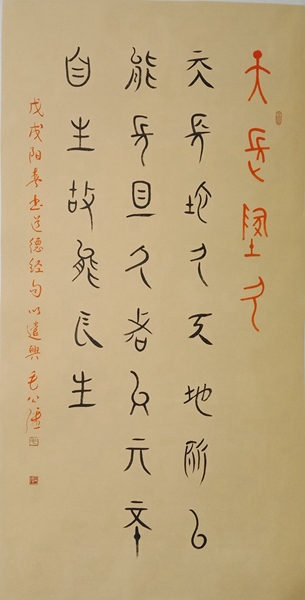 天長地久
天長地久天地所以
能長且久者以亓不
自生故能長生
戊戌阳春书道德经句以遣興毛公